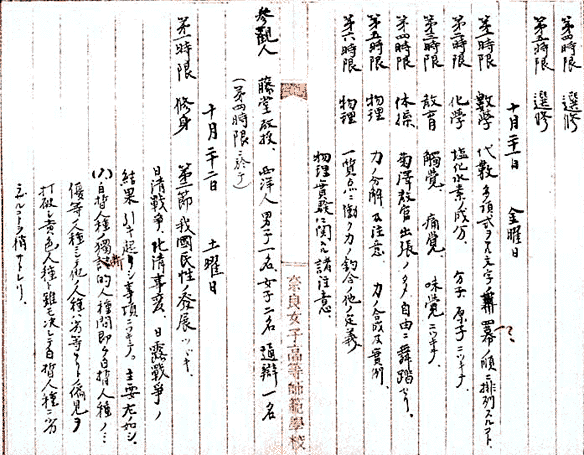 第四時限 選修
第五時限 選修
十月二十一日 金曜日
第一時限 數學 代數 多項式ヲ文字ノ冪ノ順ニ排列スルコト、
第二時限 化學 塩化水素ノ成分、分子、原子ニツキテ、
第三時限 教育 觸覺、痛覺、味覺ニツキテ、
第四時限 体操 菊澤教官出張ノタメ自由ニ舞踏セリ。
第五時限 物理 力ノ分解及注意 力ノ合成及實例、
第六時限 物理 一質点ニ働ク力ノ釣合ノ他ノ定義
物理實驗ニ関スル諸注意、
奈良女子高等師範學校
參觀人 藤堂教授 西洋人男子一名、女子二名 通辯一名
(第四時限終マデ)
十月二十二日 土曜日
第一時限 修身 第二節 我國民性ノ発展ツヅキ、
日清戰爭、北清事変、日露戰爭ノ
結果引キ起セシ事項ニツキテ、主要左ノ如シ、
(ハ)白皙人種ノ獨斷的人種間即チ白皙人種ハ…
優等人種ニシテ他ノ人種ハ劣等ナリトノ偏見ヲ
打破シ黄色人種ト雖モ決シテ白皙人種ニ劣
ルコトヲ悟サトレリ、